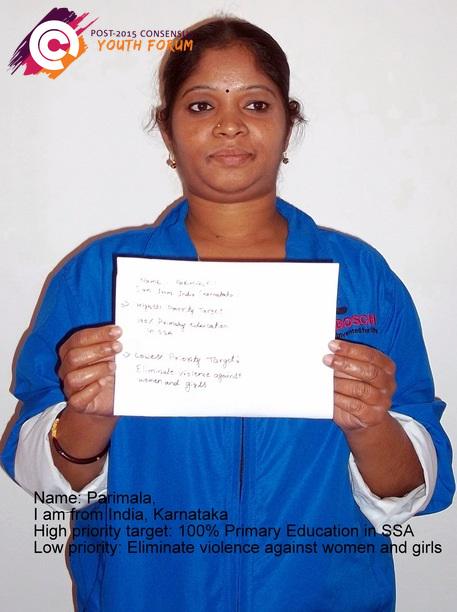 POST-2015 CONSENSUS
YOUTH FORUM
Name : PARIMALA
I am from India Karnataka
Highest Priority Target
100% Primary Education
in SSA
Lowest Priority Target:
Eliminate violence against
women and girls
BOSCH
Invented for life
Name: Parimala,
I am from India, Karnataka
High priority target: 100% Primary Education in SSA
Low priority: Eliminate violence against women and girls